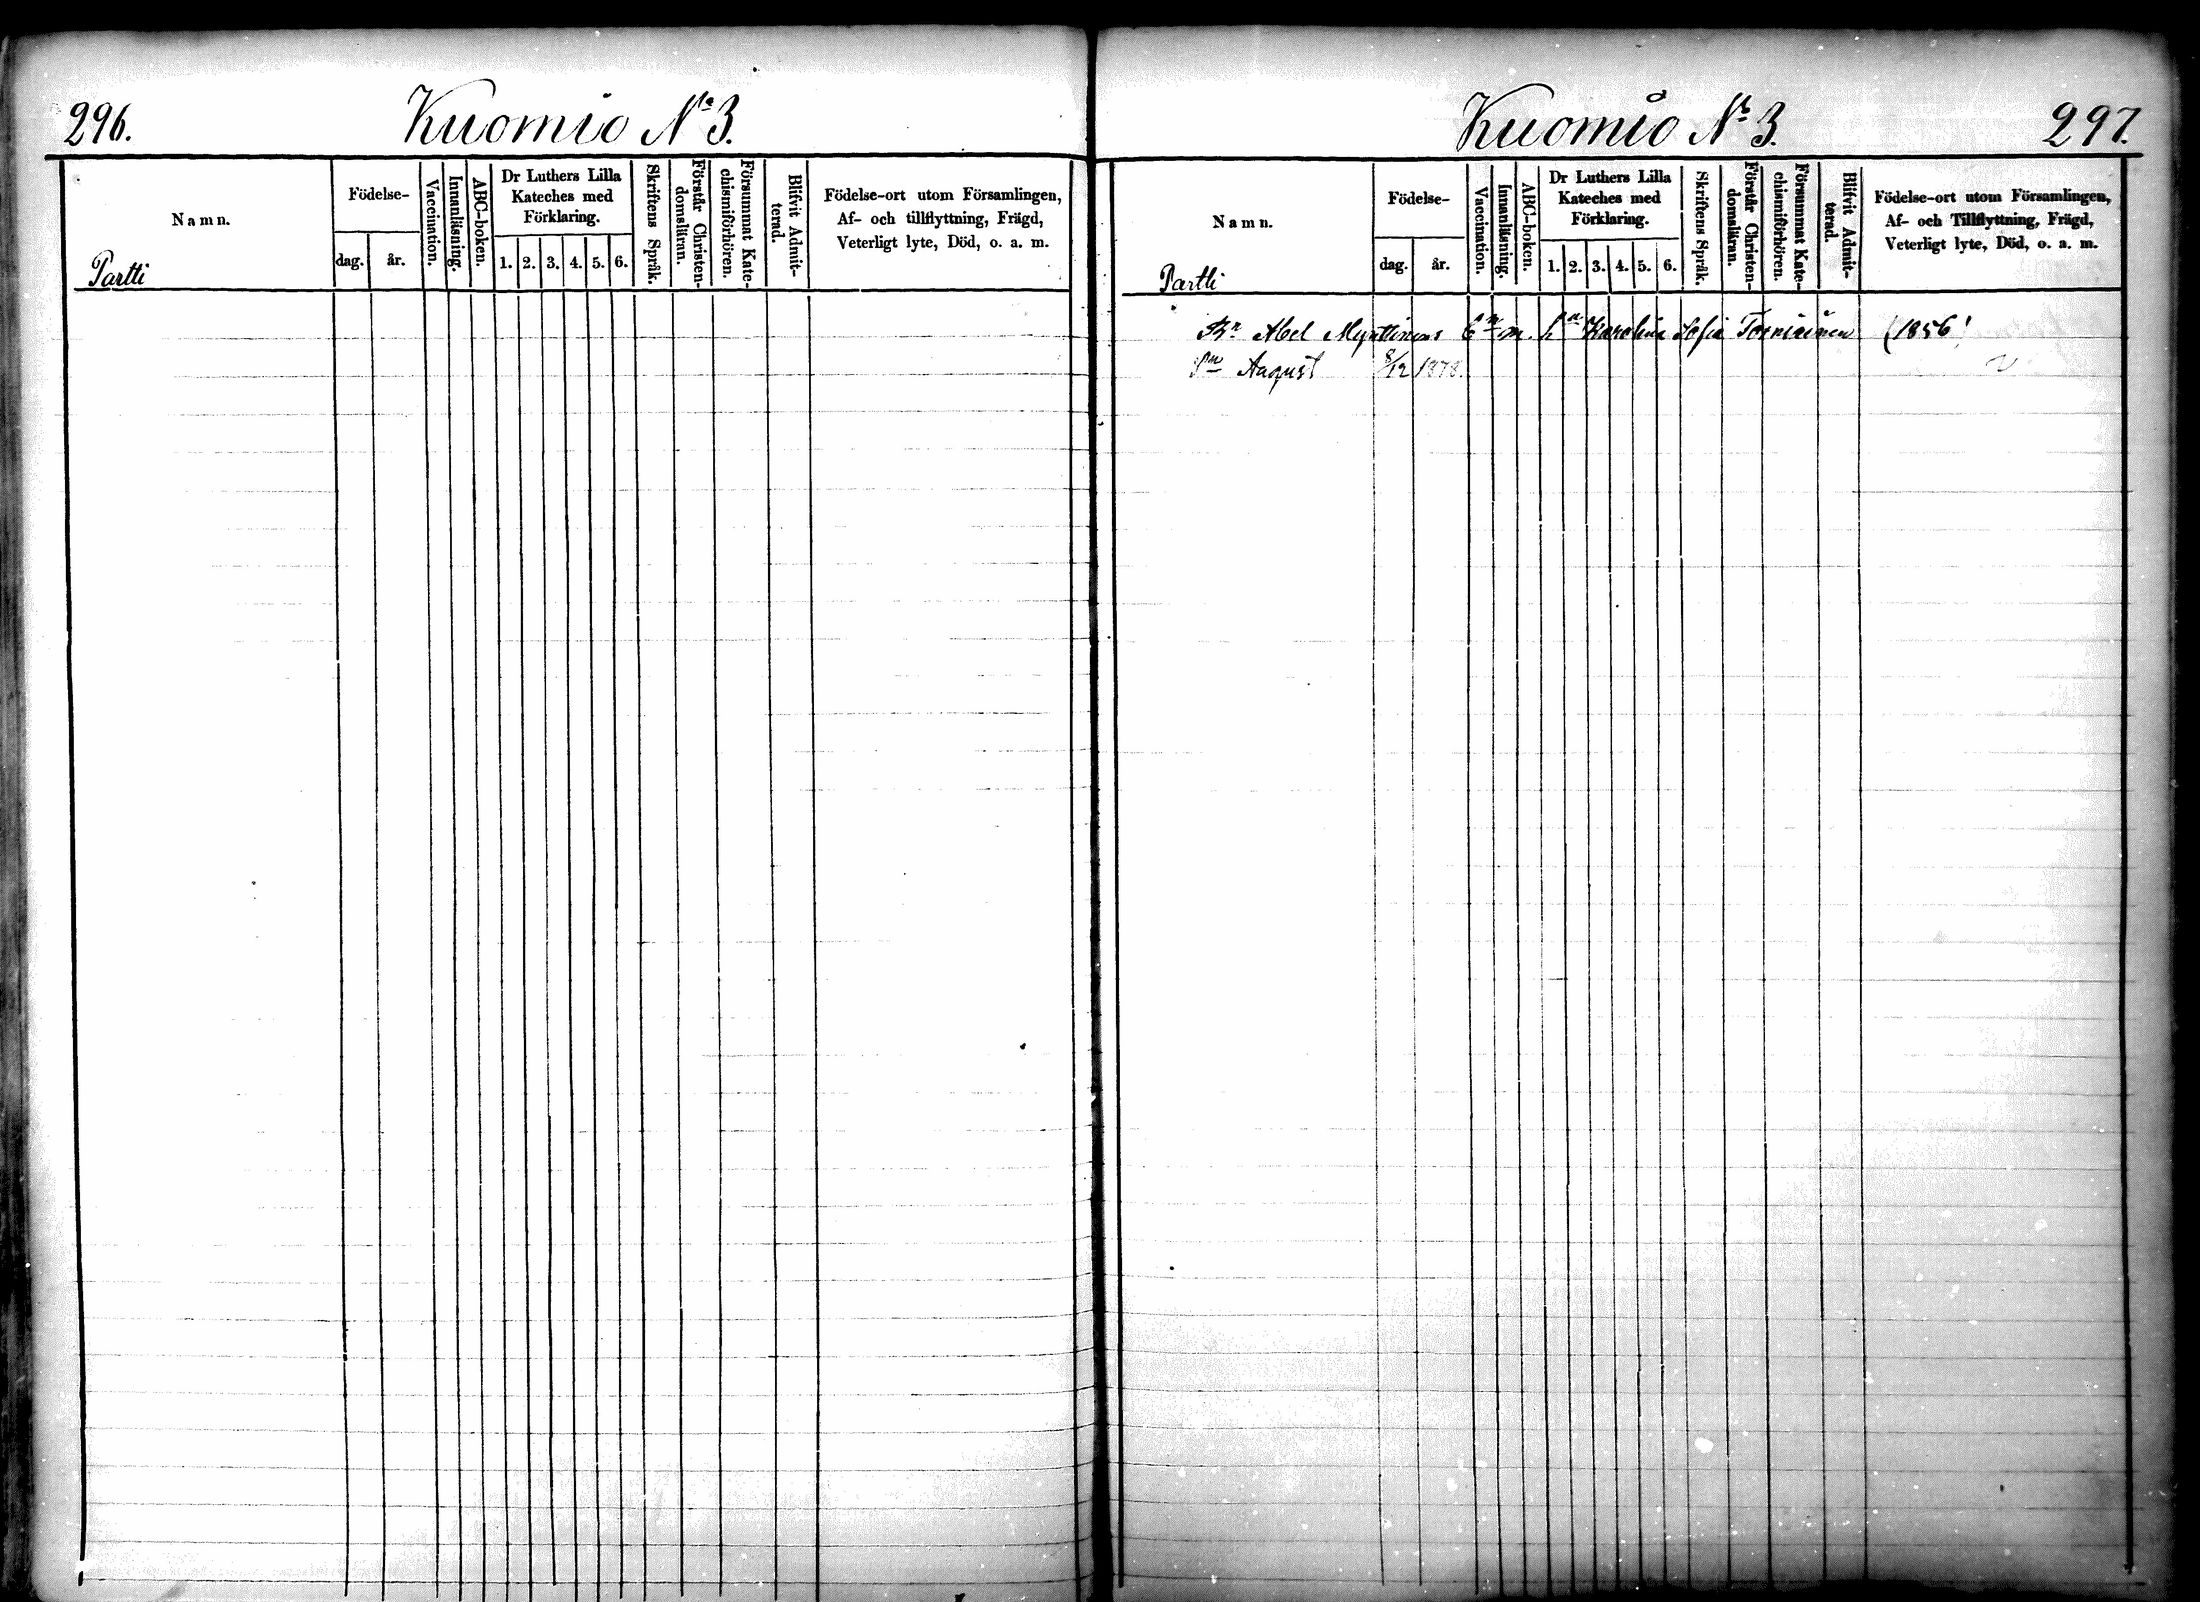 296.
Kuomio No 3.
Namn.
Partti
Födelse-
dag.
år.
Vaccination.
Innanläsning.
ABC-boken.
Dr Luthers Lilla
Kateches med
Förklaring.
1. 2. 3. 4. 5. 6.
Skriftens Språk.
Förstår Christen-
domsläran.
Försummat Kate-
chismiförhören.
Blifvit Admit-
terad.
Födelse-ort utom Församlingen,
Af- och tillflyttning, Frägd,
Veterligt lyte, Död, o. a. m.
Kuomio No 3.
297.
Namn.
Partti
Födelse-
dag.
år.
Vaccination.
Innanläsning.
ABC-boken.
Dr Luthers Lilla
Kateches med
Förklaring.
1. 2. 3. 4. 5. 6.
Skriftens Språk.
Förstår Christen-
domsläran.
Försummat Kate-
chismiförhören.
Blifvit Admit-
terad.
Födelse-ort utom Församlingen,
Af- och Tillflyttning, Frägd,
Veterligt lyte, Död, o. a. m.
Abel Mynttinens Karolina Sofia Torniainen (1856
August 8/12 1878.